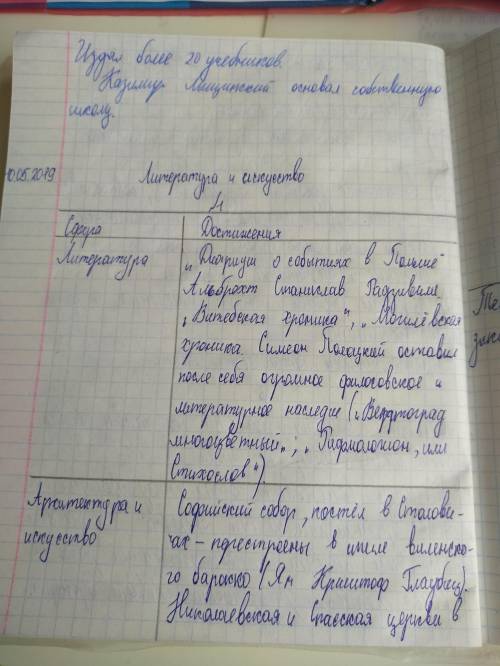 Издал более 20 учебников.
Казимир Лыщинский основал собственную
школу.
10.05.2019
Литература и искусство
Сфера Достижения
Литература „Диариуш о событиях в Польше"
Альбрехт Станислав Радзивилл.
„Витебская хроника", „Могилёвская
хроника. Симеон Полоцкий оставил
после себя огромное философское и
литературное наследие („Вертоград
многоцветный„; „Рифмологион, или
Стихослов")
Архитектура и искусство
Софийский собор, костёл в Столови-
чах – перестроены в стиле виленско-
го барокко (Ян Криштоф Глаубиц).
Николаевская и Спасская церкви в